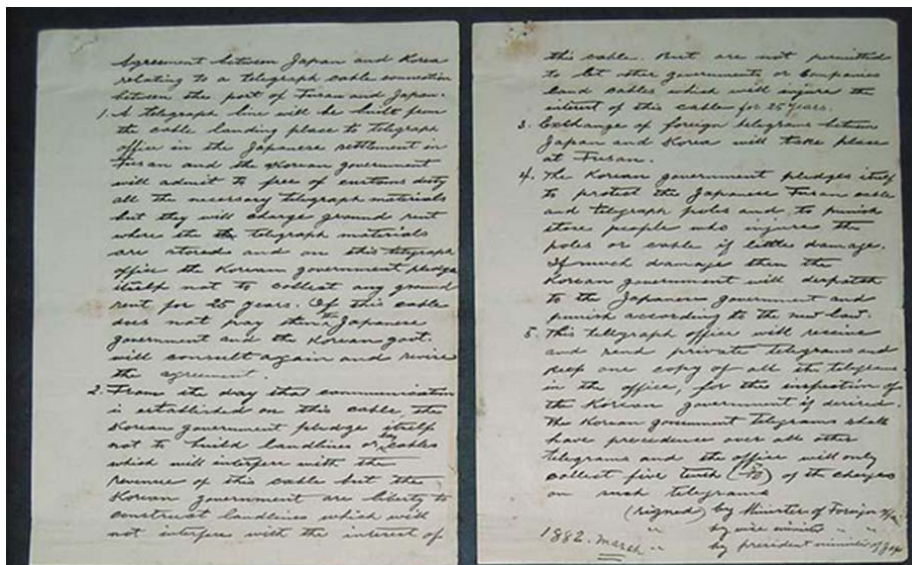 Agreement between Japan and Korea
relating to a telegraph cable connection
between the port of Fusan and Japan.
1. A telegraph line will be built from
the cable landing place to telegraph
office in the Japanese settlement in
Fusan and the Korean government
will admit to free of customs duty
all the necessary telegraph materials
but they will charge ground rent
where the the telegraph materials
are stored and on this telegraph
office the Korean government pledge
itself not to collect any ground
rent for 25 years. If this cable
does not pay then the Japanese
government and the Korean govt.
will consult again and revise
the agreement.
2. From the day that communication
is established on this cable, the
Korean government pledge itself
not to build landlines or cables
which will interfere with the
revenue of this cable but the
Korean government are liberty to
construct landlines which will
not interfere with the interest of
this cable. But are not permitted
to let other governments or Companies
land cables which will injure the
interest of this cable for 25 years.
3. Exchange of foreign telegrams between
Japan and Korea will take place
at Fusan.
4. The Korean government pledges itself
to protect the Japanese Fusan cable
and telegraph poles and to punish
people who injure the
poles or cable if little damage.
If much damage then the
Korean government will
to the Japanese government and
punish according to the law.
5. This telegraph office will receive
and send private telegrams and
keep one copy of all the telegrams
in the office, for the inspection of
the Korean government if desired.
The Korean government telegrams shall
have precedence over all other
telegrams and the office will only
collect five tenth (5/10) of the charges
on such telegrams
(signed) by Minister of Foreign
" by vice minister "
1882. March " by president minister of